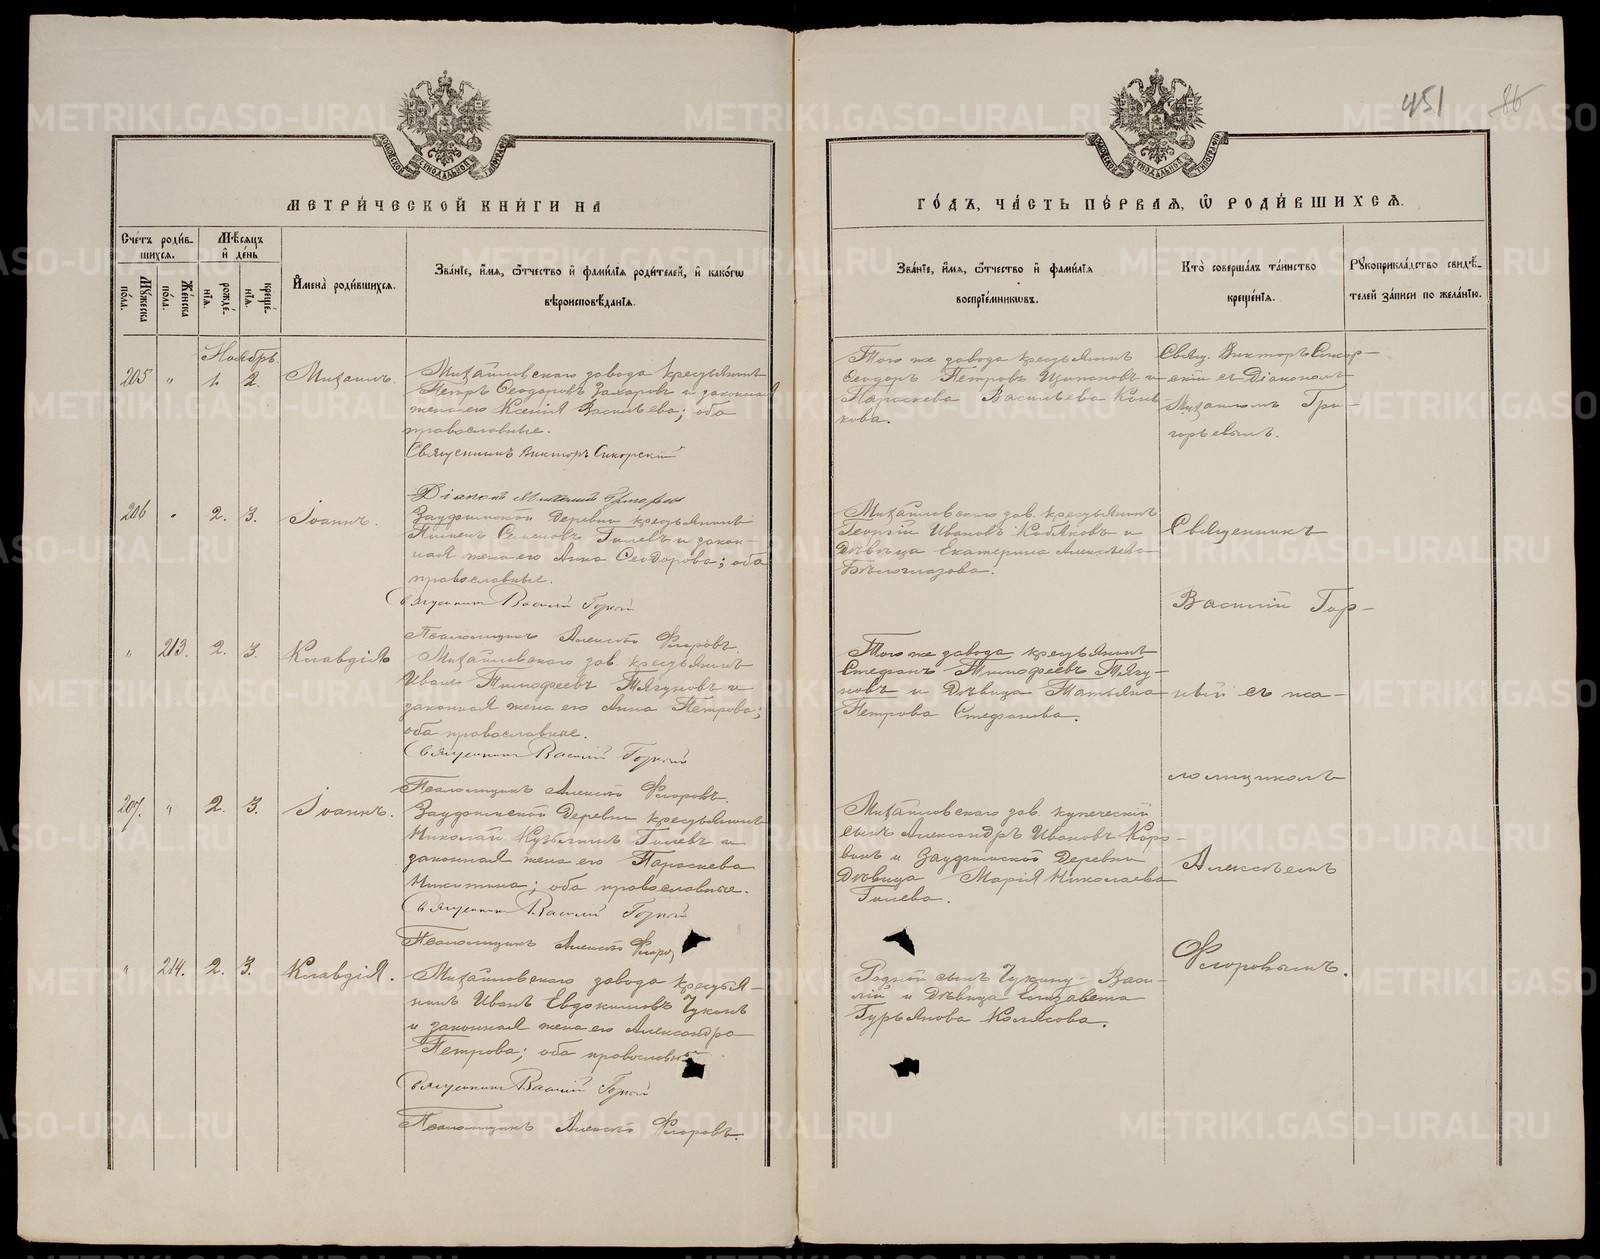 451 86
МЕТРИ́ЧЕСКОЙ КНИ́ГИ НА
ГО́ДЪ, ЧА́СТЬ ПЕ́РВАЯ, Ѡ РОДИ́ВШИХСЯ.
Сче́тъ роди́в-
шихся.
Мꙋ́жеска по́ла.
Же́нска по́ла.
Мѣ́сяцъ
и̑ де́нь
рожде́-
нїѧ.
креще́-
нїѧ.
И̑мена̀ роди́вшихся.
Зва́нїе, и̑́мѧ, ѻ҆́тчество и̑ фами́лїѧ роди́телей, и̑ како́гѡ
вѣроисповѣ́данїѧ.
Зва́нїе, и̑́мѧ, ѻ҆́тчество и̑ фами́лїѧ
воспрїе́мникѡвъ.
Кто̀ соверша́лъ та́инство
креще́нїѧ.
Рꙋкоприкла́дство свидѣ́-
телей за́писи по жела́нїю.
Ноябрь
205 " 1. 2. Михаилъ.
Михайловскаго завода крестьянинъ
Петръ Ѳеодоровъ Захаровъ и законная
жена его Ксенія Васильева; оба
православные.
Священникъ Викторъ Сикорскій
Діаконъ Михаилъ Григорьевъ
Того же завода крестьянинъ
Ѳеодоръ Петровъ Щипановъ и
Параскева Васильева
кова.
Свящ. Викторъ Сикор-
скій съ Діакономъ
Михаиломъ Гри-
горьевымъ.
206 " 2. 3. Іоаннъ.
Заудоинской деревни крестьянинъ
Пименъ Семеновъ Гилевъ и закон-
ная жена его Анна Ѳеодорова; оба
православные.
Священникъ Василій Горный
Псаломщикъ Алексѣй Флоровъ.
Михайловскаго зав. крестьянинъ
Георгій Ивановъ Кобяковъ и
Дѣвица Екатерина Алексѣева
Бѣлоглазова.
Священникъ
Василій Гор-
ный съ пса-
ломщикомъ
Алексѣемъ
Флоровымъ.
" 213. 2. 3. Клавдія
Михайловскаго зав. крестьянинъ
Иванъ Тимофеевъ Тягуновъ и
законная жена его Анна Петрова;
оба православные.
Священникъ Василій Горный
Псаломщикъ Алексѣй Флоровъ.
Того же завода крестьянинъ
Стефанъ Тимофеевъ Тягу-
новъ и Дѣвица Татьяна
Петрова Стефанова.
207. " 2. 3. Іоаннъ.
Заудоинской деревни крестьянинъ
Николай Кузьминъ Гилевъ и
законная жена его Параскева
Никитина; оба православные.
Священникъ Василій Горный
Псаломщикъ Алексѣй Флоров
Михайловскаго зав. купеческій
сынъ Александръ Ивановъ Коро-
винъ и Заудоинской деревни
Дѣвица Марія Николаева
Гилева.
" 214. 2. 3. Клавдія.
Михайловскаго завода крестья-
нинъ Иванъ Евдокимовъ Чукинъ
и законная жена его Александра
Петрова; оба православные
Священникъ Василій Горный
Псаломщикъ Алексѣй Флоровъ.
Родной сынъ Чукину - Васи-
лій и Дѣвица Елизавета
Гурьянова Колясова.
METRIKI.GASO-URAL.RU